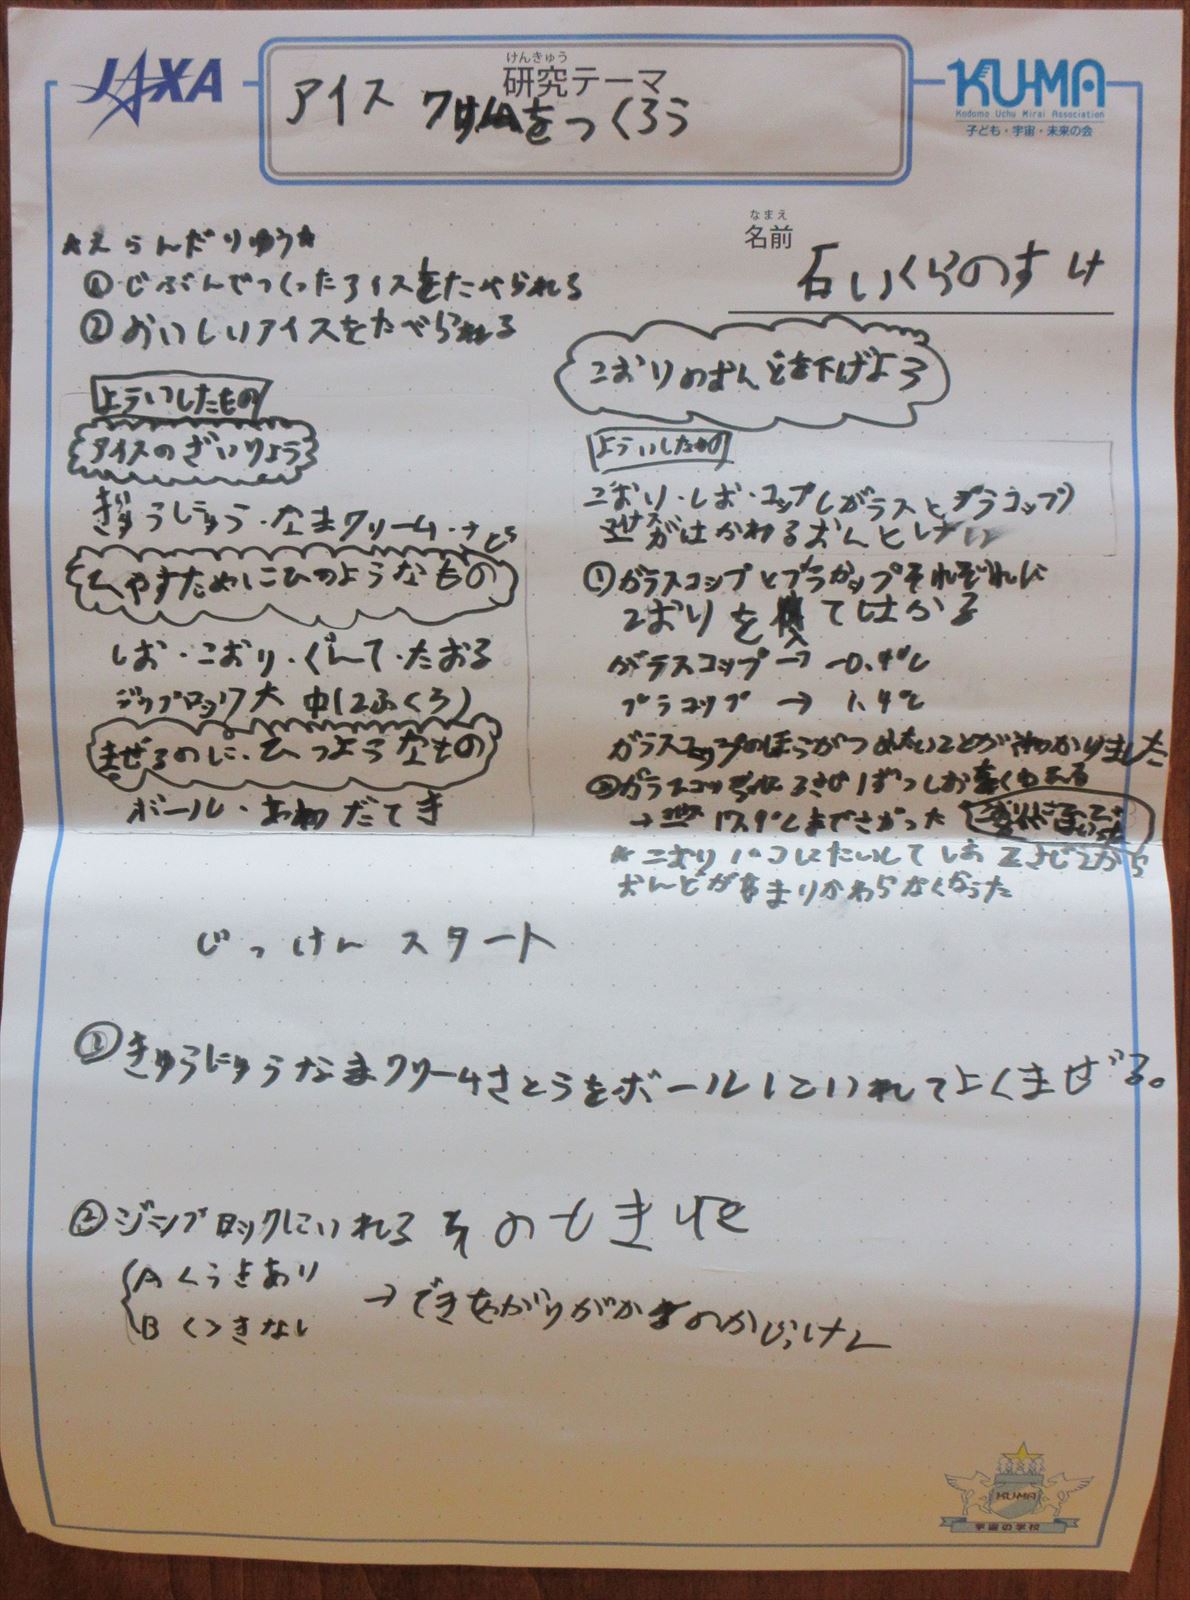 JAXA
けんきゅう
研究テーマ
アイス クリームをつくろう
KU-MA
Kodomo Uchu Mirai Association
子ども・宇宙・未来の会
なまえ
名前
石いくらのすけ
★えらんだりゆう★
①じぶんでつくったアイスをたべられる
②おいしいアイスをたべられる
よういしたもの
アイスのざいりょう
ぎゅうにゅう・なまクリーム・さとう
ひやすためにひつようなもの
しお・こおり・ぐんて・たおる
ジップロック大 中(2ふくろ)
まぜるのに・ひつような・もの
ボール・あわだてき
こおりのおんどを下げよう
よういしたもの
こおり・しお・コップ(ガラスとプラコップ)
はかるおんどけい
①ガラスコップとプラカップそれぞれに
こおりを入てはかる
ガラスコップ→ -0.4℃
プラコップ → 1.4℃
ガラスコップのほうがつめたいことがわかりました
②ガラスコップに さじ1ずつしお
→ 17.9℃までさがった
★こおり1コにたいしてしお2さじから
おんどがあまりかわらなくなった
じっけんスタート
①きゅうにゅうなまクリームさとうをボールにいれてよくまぜる。
②ジップロックにいれる そのとき
A くうきあり
B くうきなし
→できあがりが のかじっけん
KU-MA
宇宙の学校